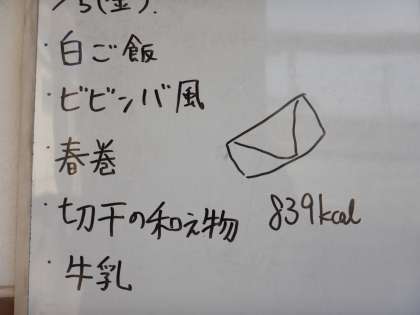 (金).
・白ご飯
・ビビンバ風
・春巻
・切干の和え物
839kcal
・牛乳